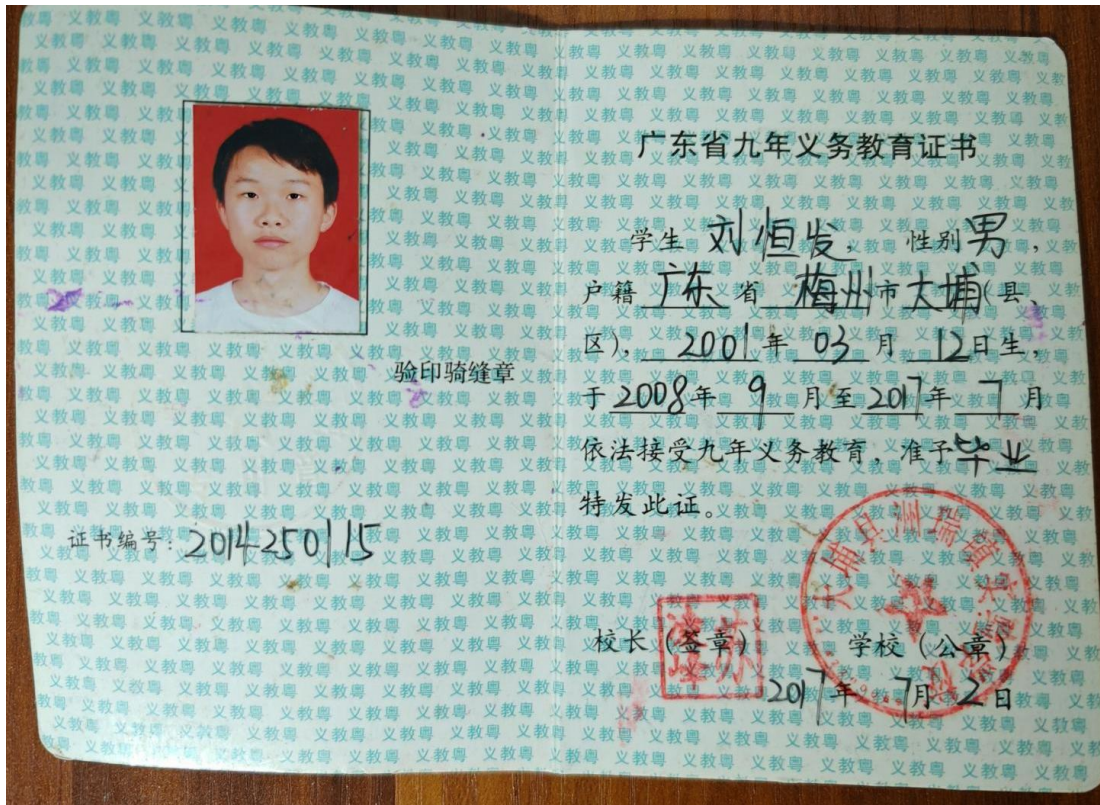 验印骑缝章
证书编号：2014250115
广东省九年义务教育证书
学生 刘恒发， 性别男，
户籍 广东 省 梅州市大埔（县、
区），2001年 03 月 12日生，
于2008年 9 月至2017年 7 月
依法接受九年义务教育，准予毕业
特发此证。
校长（签章） 学校（公章）
2017年 7月 2日
大埔县洲瑞镇